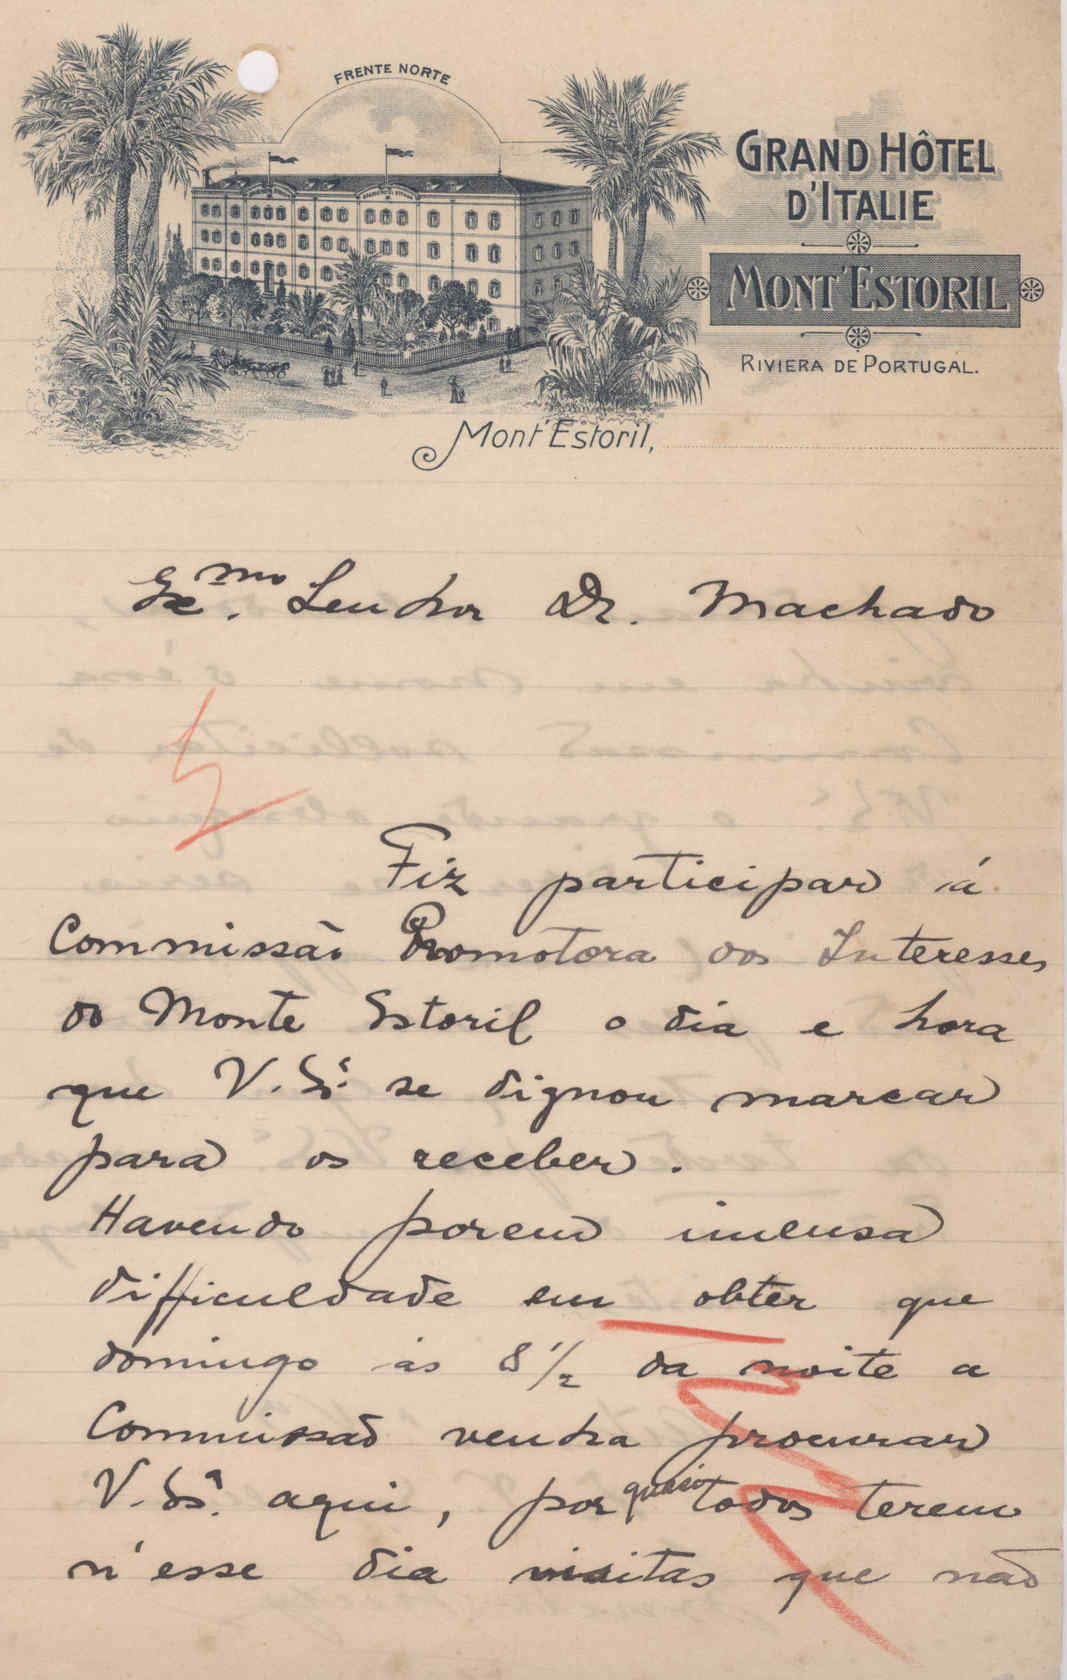 FRENTE NORTE
GRAND HÔTEL
D'ITALIE
MONT'ESTORIL
RIVIERA DE PORTUGAL.
Mont'Estoril,
Exmo. Senhor Dr. Machado
Fiz participar á
Commissão Promotora dos Interesses
do Monte Estoril o dia e hora
que V. Sª. se dignou marcar
para os receber.
Havendo porem imensa
difficuldade em obter que
domingo ás 8 1/2 da noite a
Commissão venha procurar
V. Sª. aqui, por quasi todos terem
n'esse dia visitas que não